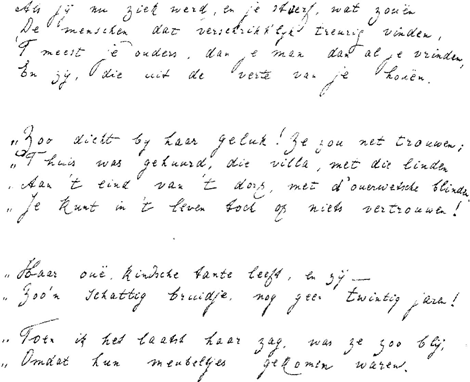 Als jij nu ziek werd, en je stierf, wat zouën
De menschen dat verschrikklijk treurig vinden,
'T meest je ouders, dan je man dan al je vrinden,
En zij, die uit de verte van je houën.
„Zoo dicht bij haar geluk! Ze zou net trouwen;
„'T huis was gehuurd, die villa, met die linden
„Aan 't eind van 't dorp, met d'ouerwetsche blinden
„Je kunt in 't leven toch op niets vertrouwen!
„Haar ouë, kindsche tante leeft, en zij —
„Zoo'n schattig bruidje, nog geen twintig jaren!
„Toen ik het laatst haar zag, was ze zoo blij,
„Omdat hun meubeltjes gekomen waren.